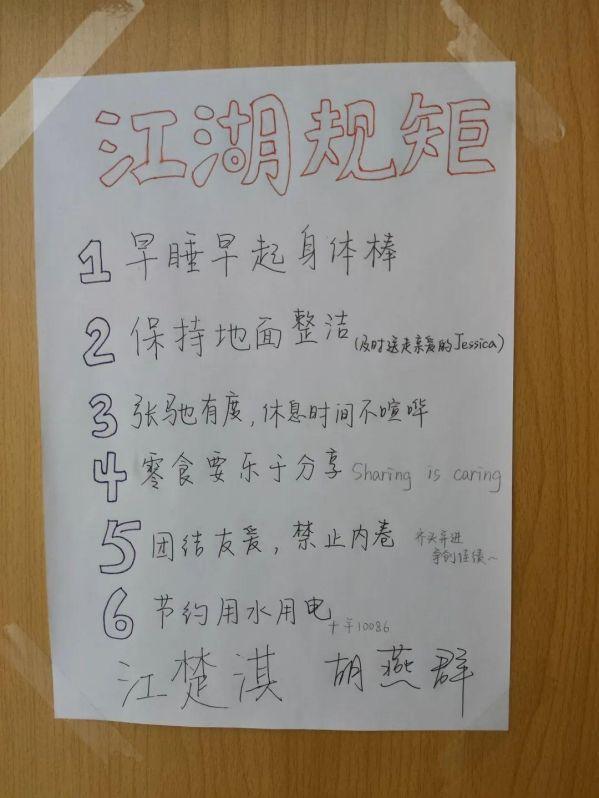 江湖规矩
1 早睡早起身体棒
2 保持地面整洁(及时送走亲爱的Jessica)
3 张驰有度,休息时间不喧哗
4 零食要乐于分享 Sharing is caring
5 团结友爱,禁止内卷 齐头并进
争创佳绩~
6 节约用水用电 十年10086
江楚淇 胡燕群